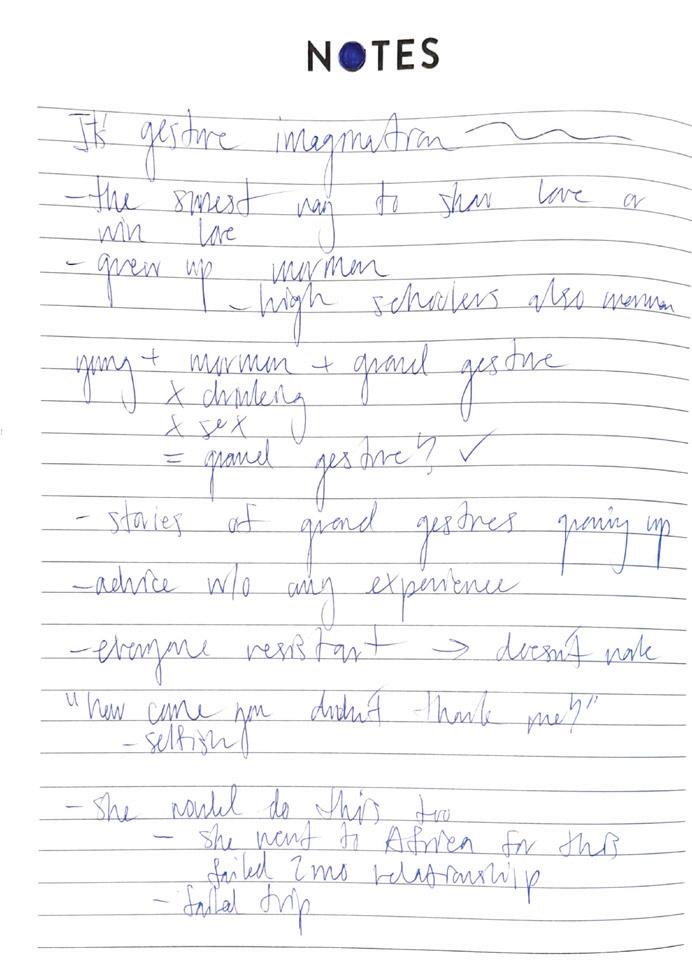 NOTES
It's gesture imagination
- the surest way to show love or
win love
- grew up mormon
- high schoolers also mormon
young + mormon + grand gesture
x drinking
x sex
= grand gesture? ✓
- stories of grand gestures growing up
- advice w/o any experience
- everyone resistant → doesn't work
"how come you didn't thank me?"
- selfish
- she would do this too
- she went to Africa for this
failed 2mo relationship
- failed trip